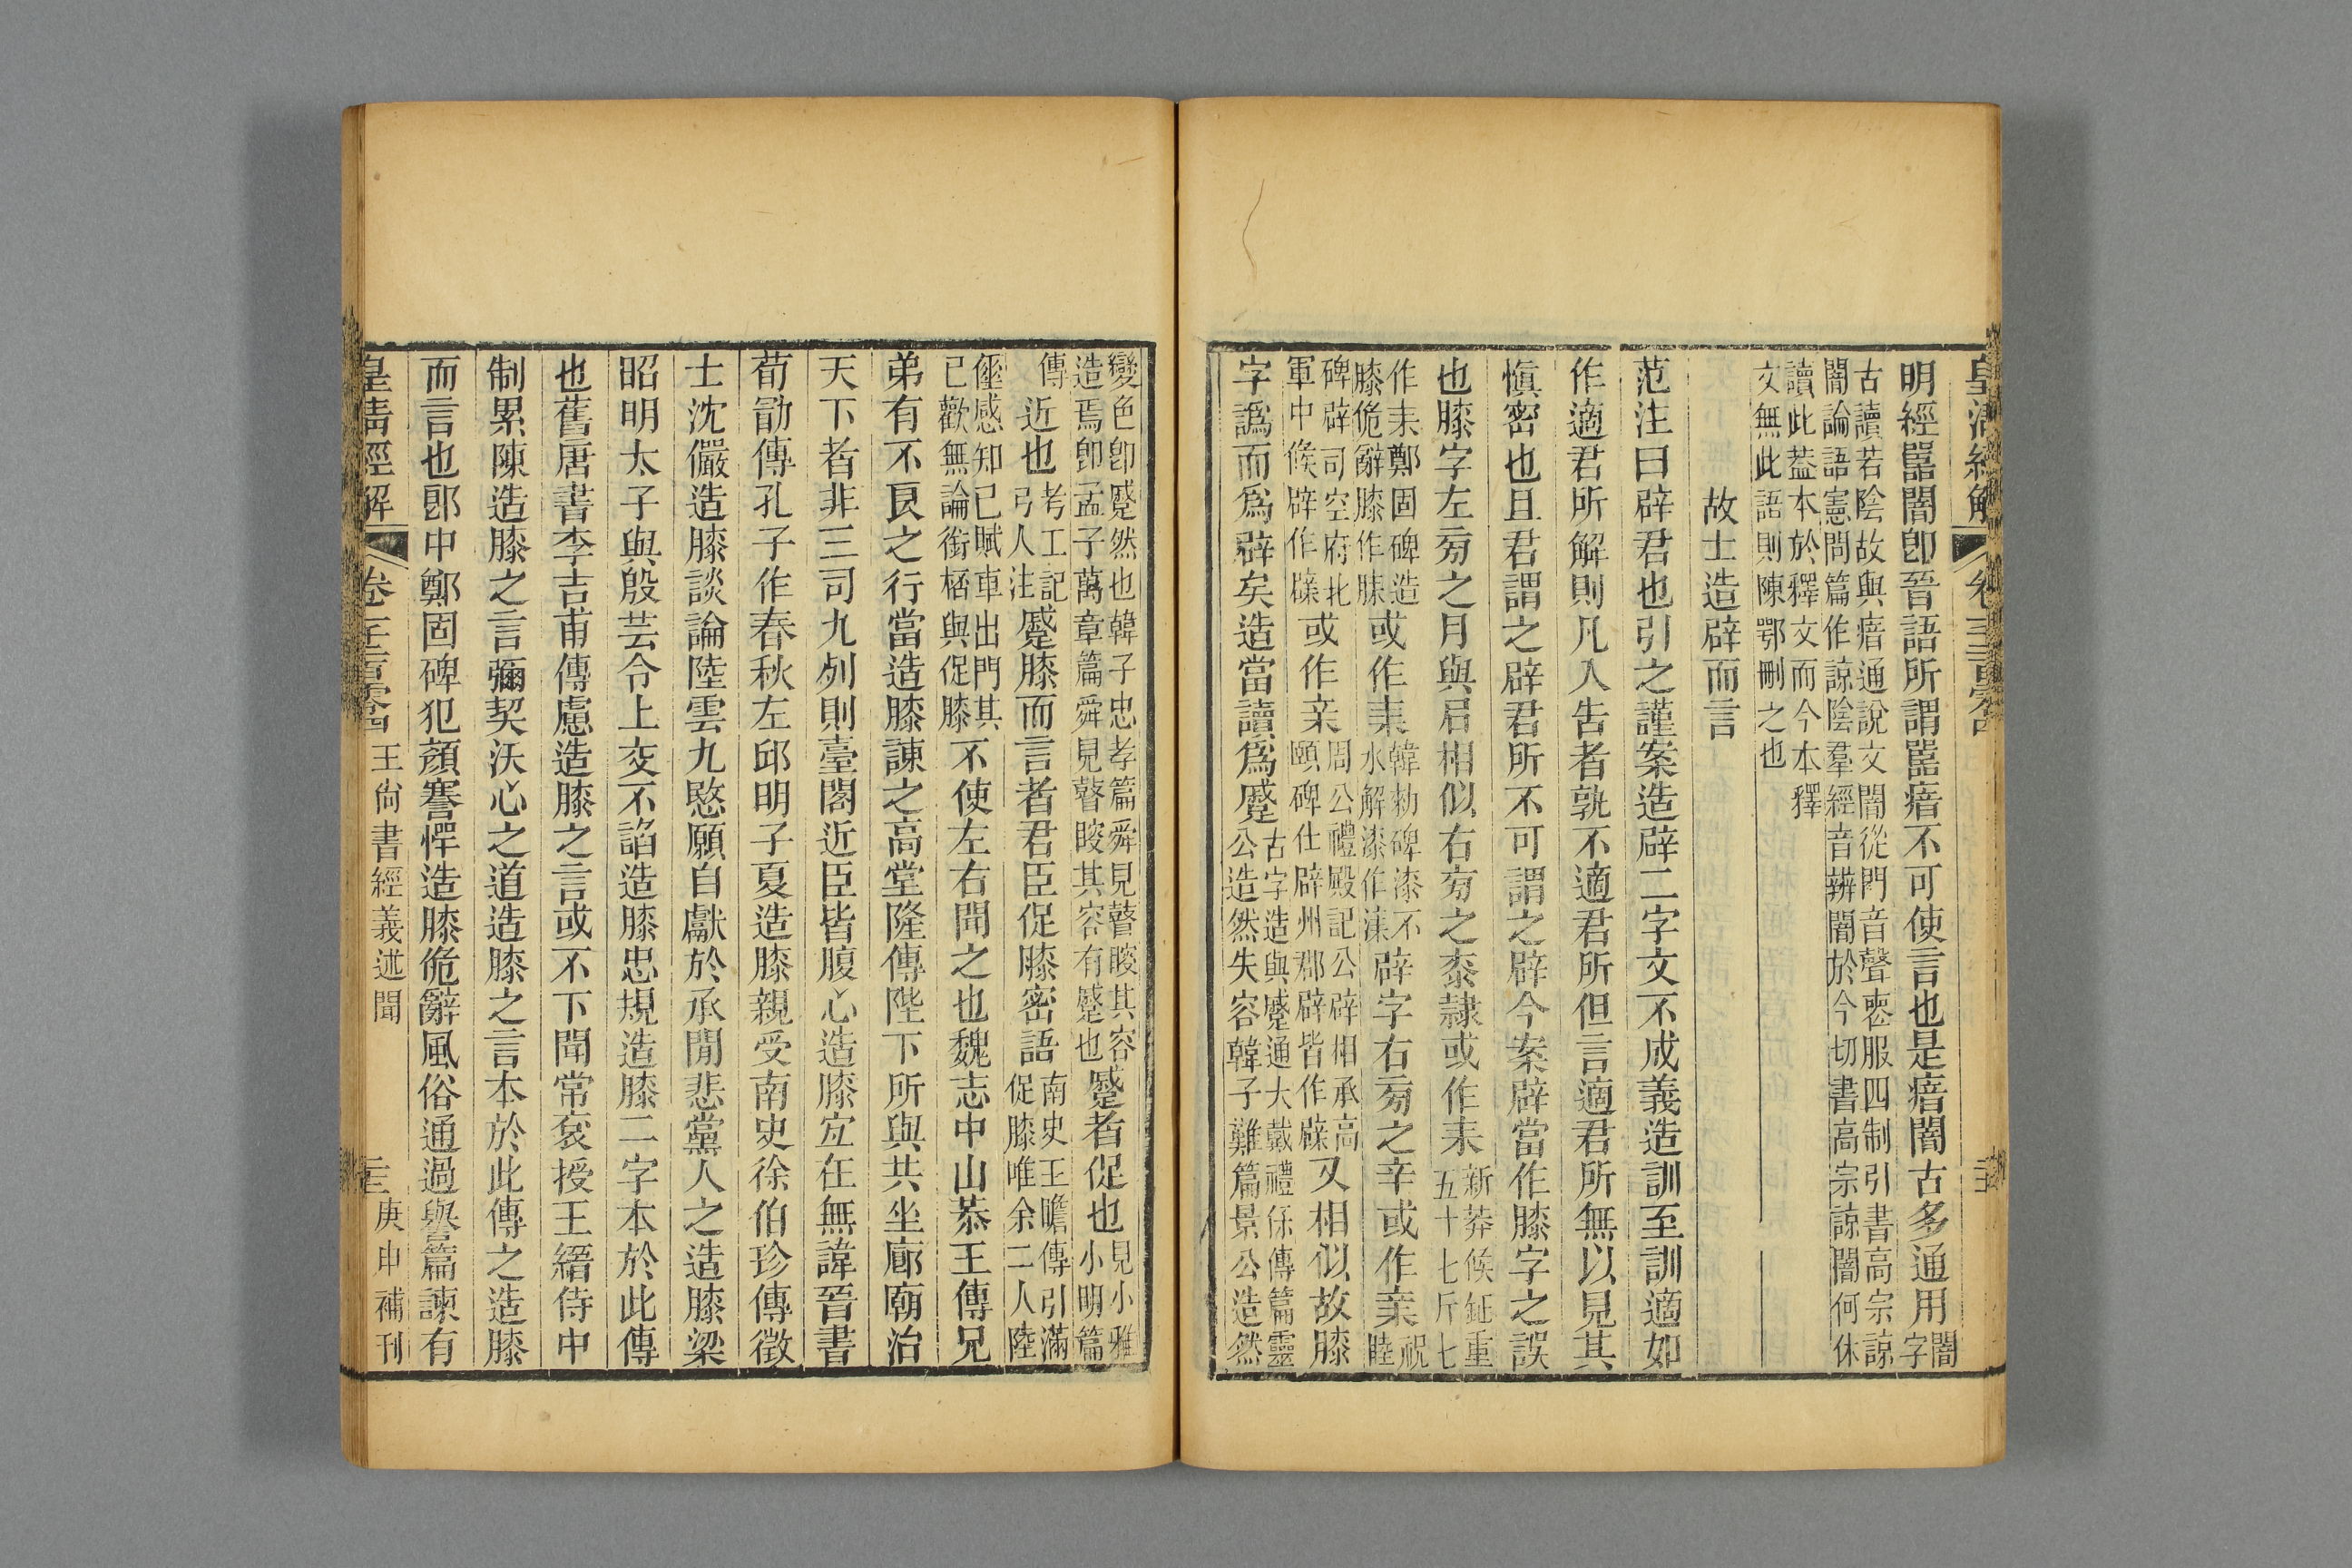 明經嚚闇卽晉語所謂嚚瘖不可使言也是瘖闇古多通用闇字
古讀若陰故與瘖通說文闇從門音聲喪服四制引書高宗諒
闇論語憲問篇作諒陰羣經音辨闇於今切書高宗諒闇何休
讀此葢本於釋文而今本釋
文無此語則陳鄂刪之也
故士造辟而言
范注曰辟君也引之謹案造辟二字文不成義造訓至訓適如
作適君所解則凡入告者孰不適君所但言適君所無以見其
愼密也且君謂之辟君所不可謂之辟今案辟當作膝字之誤
也膝字左㫄之月與𡰥相似右㫄之桼隸或作耒新莽候鉦重五十七斤七
作耒鄭固碑造膝佹辭膝作𦟛或作桒韓勑碑漆不水解漆作𣻏辟字右㫄之辛或作亲祝睦
碑辟司空府北軍中候辟作𨐢或作亲周公禮殿記公辟相承高頤碑仕辟州郡辟皆作𨐢又相似故膝
字譌而爲辟矣造當讀爲蹙古字造與蹙通大戴禮保傅篇靈公造然失容韓子難篇景公造然
變色卽蹙然也韓子忠孝篇舜見瞽瞍其容造焉卽孟子萬章篇舜見瞽瞍其容有蹙也蹙者促也見小雅小明篇
傳近也考工記弓人注蹙膝而言者君臣促膝密語南史王瞻傳引滿促膝唯余二人陸
倕感知己賦車出門其已歡無論銜栝與促膝不使左右聞之也魏志中山恭王傳兄
弟有不良之行當造膝諫之高堂隆傳陛下所與共坐廊廟治
天下者非三司九列則臺閣近臣皆腹心造膝宜在無諱晉書
荀勖傳孔子作春秋左邱明子夏造膝親受南史徐伯珍傳徵
士沈儼造膝談論陸雲九愍願自獻於承閒悲黨人之造膝梁
昭明太子與殷芸令上交不諂造膝忠規造膝二字本於此傳
也舊唐書李吉甫傳慮造膝之言或不下聞常袞授王縉侍中
制累陳造膝之言彌契沃心之道造膝之言本於此傳之造膝
而言也郞中鄭固碑犯顏謇愕造膝佹辭風俗通過譽篇諫有
皇淸經解 卷一千二百零四 王尙書經義述聞 三 庚申補刊